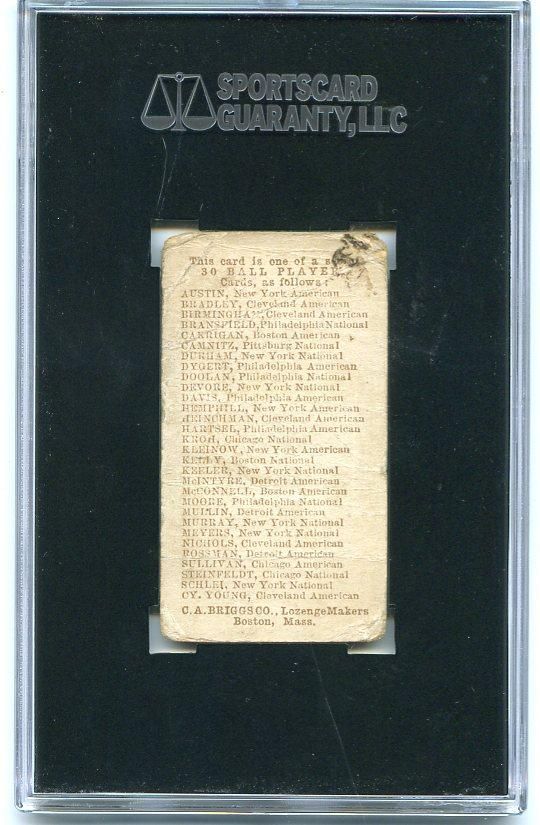 SPORTSCARD
GUARANTY, LLC
This card is one of a
30 BALL PLAYER
Cards, as follows:
AUSTIN, New York American
BRADLEY, Cleveland American
BIRMINGHAM, Cleveland American
BRANSFIELD, Philadelphia National
CARRIGAN, Boston American
CAMNITZ, Pittsburg National
DURHAM, New York National
DYGERT, Philadelphia American
DOOLAN, Philadelphia National
DEVORE, New York National
DAVIS, Philadelphia American
HEMPHILL, New York American
HEINCHMAN, Cleveland American
HARTSEL, Philadelphia American
KROH, Chicago National
KLEINOW, New York American
KELLY, Boston National
KEELER, New York National
McINTYRE, Detroit American
McCONNELL, Boston American
MOORE, Philadelphia National
MULLIN, Detroit American
MURRAY, New York National
MEYERS, New York National
NICHOLS, Cleveland American
ROSSMAN, Detroit American
SULLIVAN, Chicago American
STEINFELDT, Chicago National
SCHLEI, New York National
CY. YOUNG, Cleveland American
C. A. BRIGGS CO., Lozenge Makers
Boston, Mass.